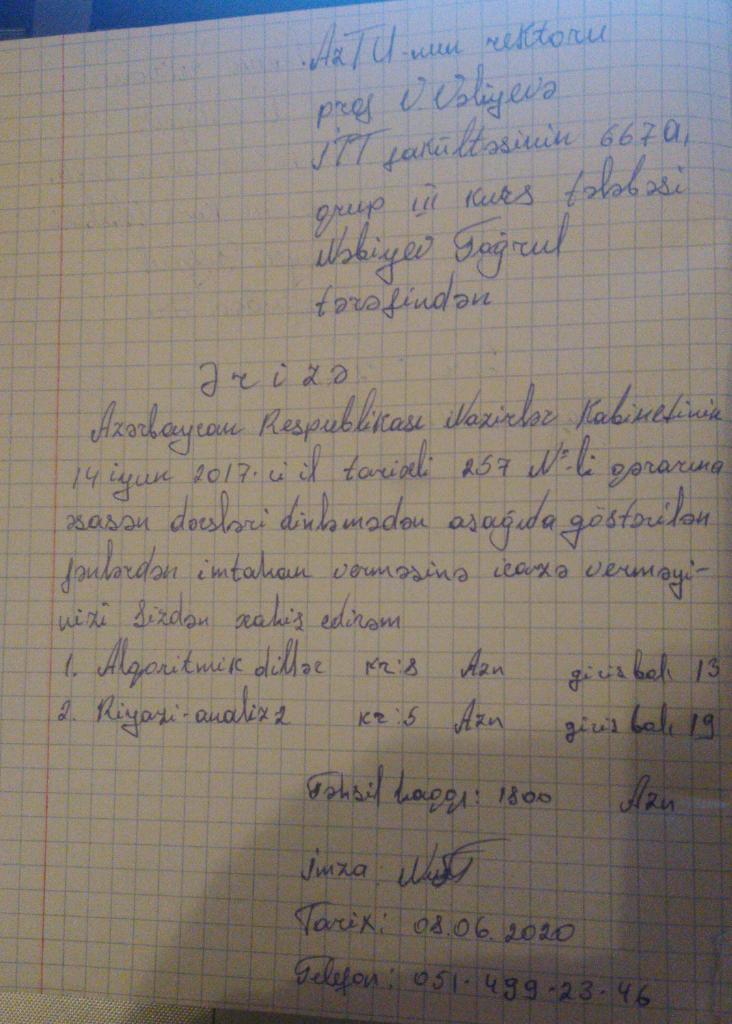 AzTU-nun rektoru
prof V.Vəliyevə
İTT fakültəsinin 667a,
qrup III kurs tələbəsi
Nəbiyev Toğrul
tərəfindən
Ərizə
Azərbaycan Respublikası Nazirlər Kabinetinin
14 iyun 2017-ci il tarixli 257 №-li qərarına
əsasən dərsləri dinləmədən aşağıda göstərilən
fənlərdən imtahan verməsinə icazə verməyi-
nizi Sizdən xahiş edirəm
1. Alqoritmik dillər kr:8 Azn giriş balı 13
2. Riyazi-analiz 2 kr:5 Azn giriş balı 19
Təhsil haqqı: 1800 Azn
İmza:
Tarix: 08.06.2020
Telefon: 051-499-23-46